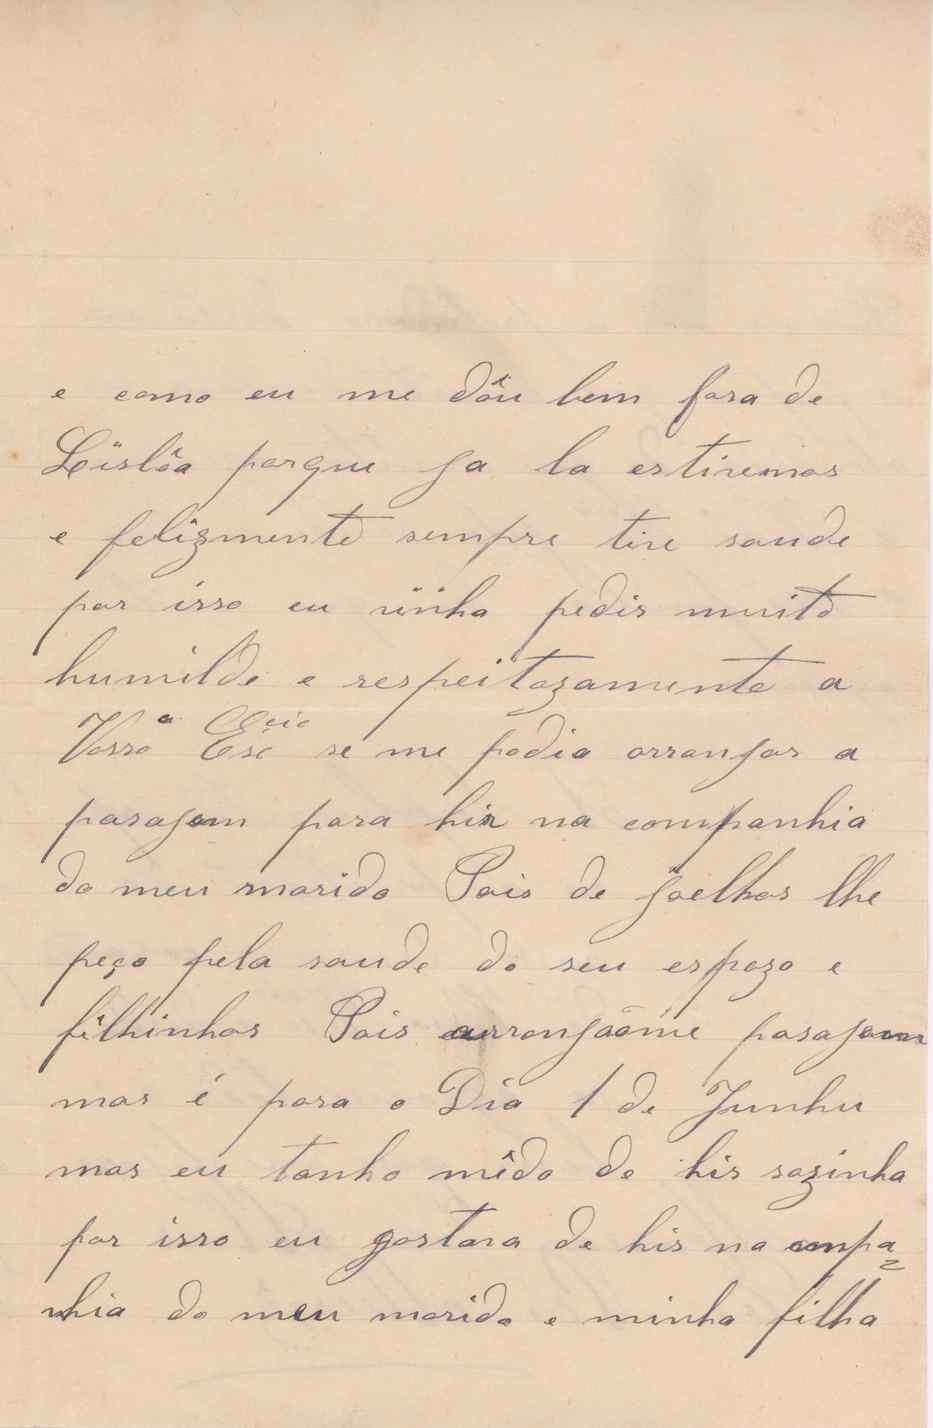 e como eu me dôu bem fora de
Lisbôa porque ja la estivemos
e felizmente sempre tive saude
por isso eu vinha pedir muito
humilde e respeitozamente a
Vossa Exc<sup>cia</sup> se me podia arranjar a
pasajem para hir na companhia
do meu marido Pois de joelhos lhe
peço pela saude do seu espozo e
filhinhos Pois arronjaõme pasajem
mas é para o Dia 1 de Junhu
mas eu tanho mêdo de hir sozinha
por isso eu gostava de hir na conpa=
nhia do meu marido e minha filha